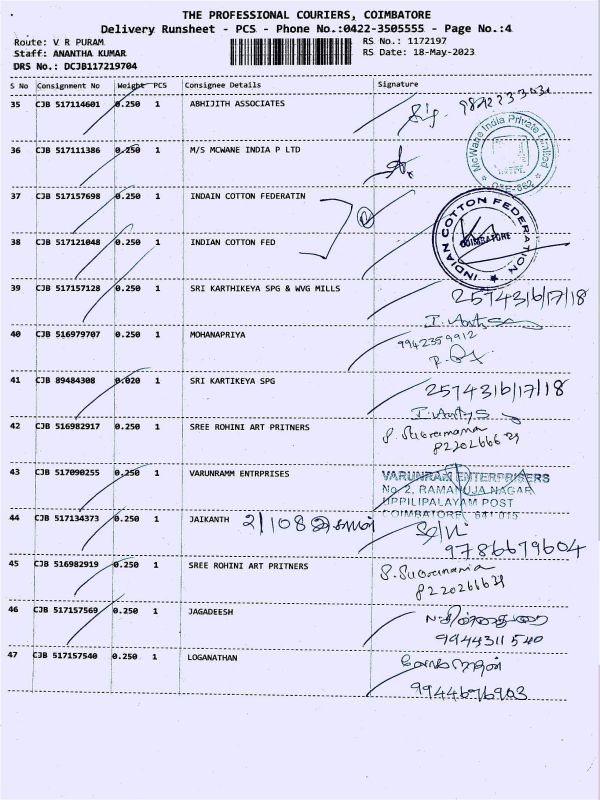 THE PROFESSIONAL COURIERS, COIMBATORE
Delivery Runsheet - PCS - Phone No.:0422-3505555 - Page No.:4
Route: V R PURAM RS No.: 1172197
Staff: ANANTHA KUMAR RS Date: 18-May-2023
DRS No.: DCJB117219704
S No Consignment No Weight PCS Consignee Details Signature
35 CJB 517114601 0.250 1 ABHIJITH ASSOCIATES
36 CJB 517111386 0.250 1 M/S MCWANE INDIA P LTD
McWane India Private Limited
37 CJB 517157698 0.250 1 INDAIN COTTON FEDERATIN
INDIAN COTTON FEDERATION
COIMBATORE
38 CJB 517121048 0.250 1 INDIAN COTTON FED
39 CJB 517157128 0.250 1 SRI KARTHIKEYA SPG & WVG MILLS
2574316/17/18
40 CJB 516979707 0.250 1 MOHANAPRIYA
9942359912
41 CJB 89484308 0.020 1 SRI KARTIKEYA SPG
2574316/17/18
42 CJB 516982917 0.250 1 SREE ROHINI ART PRITNERS
43 CJB 517090255 0.250 1 VARUNRAMM ENTRPRISES
VARUNRAM ENTERPRISERS
No 2, RAMANUJA NAGAR
UPPILIPALAYAM POST
COIMBATORE 641 015
44 CJB 517134373 0.250 1 JAIKANTH 2/108
9786679604
45 CJB 516982919 0.250 1 SREE ROHINI ART PRITNERS
46 CJB 517157569 0.250 1 JAGADEESH
9944311540
47 CJB 517157540 0.250 1 LOGANATHAN
லோகநாதன்
9944676903